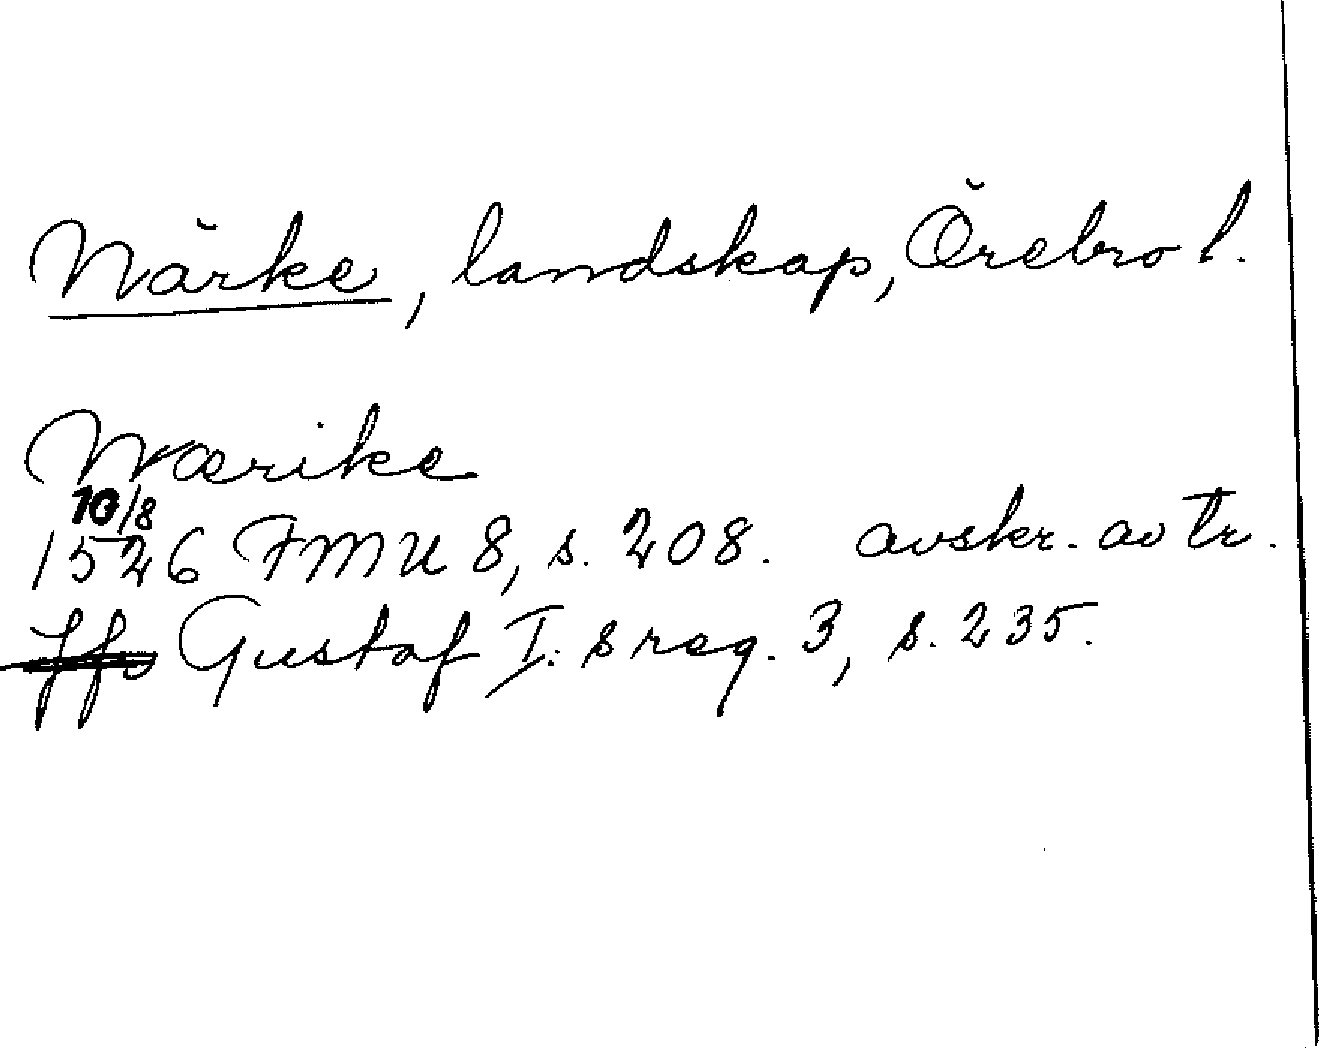 Närke, landskap, Örebro l.
Nærike
10/8
1526 FMU 8, s. 208. avskr. av tr.
Gustaf I:s reg. 3, s. 235.